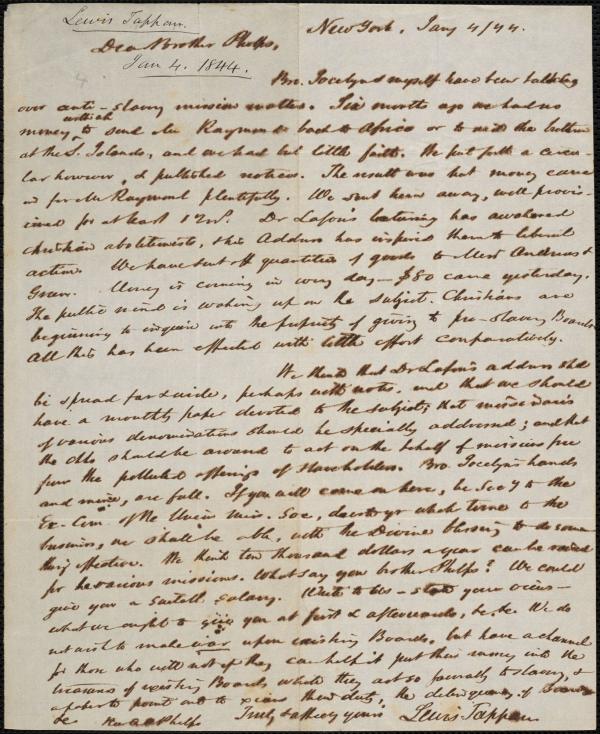 Lewis Tappan.
New York, Jany 4/44.
Dear Brother Phelps,
Jan 4. 1844.
Bro. Jocelyn & myself have been talking
over anti-slavery mission matters. Six months ago we had no
money with wh to send Mr Raymond back to Africa or to aid the brethren
at the S. Islands, and we had but little faith. We put forth a circu-
lar however, & published notices. The result was that money came
in for Mr Raymond plentifully. We sent him away, well provis-
ioned for at least 12 ms. Dr Lafon's lecturing has awakened
christian abolitionists, & his Address has inspired them to liberal
action. We have sent off quantities of goods to Messrs Andrews &
Green. Money is coming in every day — $80 came yesterday.
The public mind is waking up on the subject. Christians are
beginning to inquire into the propriety of giving to pro-slavery Boards
All this has been effected with little effort comparatively.
We think that Dr Lafon's address shd
be spread far & wide, perhaps with notes, and that we should
have a monthly paper devoted to the subject; that missionaries
of various denominations should be specially addressed; and that
the chhs should be aroused to act on the behalf of missions free
from the polluted offerings of slaveholders. Bro. Jocelyn's hands
and mine, are full. If you will come on here, be Secy to the
Ex. Com. of the Union Miss. Soc, devote yr whole time to the
business, we shall be able, with the Divine blessing to do some
thing effective. We think ten thousand dollars a year can be raised
for the various missions. What say you brother Phelps? We could
give you a suitable salary. Write to us – state your views –
what we ought to give you at first & afterwards, &c. &c. We do
not wish to make war upon existing Boards, but have a channel
for those who will not if they can help it put their money into the
treasuries of existing Boards while they act so as to slavery, &
a paper to point out to xians their duty, the delinquency of Boards
&c
Rev. A A Phelps
Truly & affecly yours
Lewis Tappan